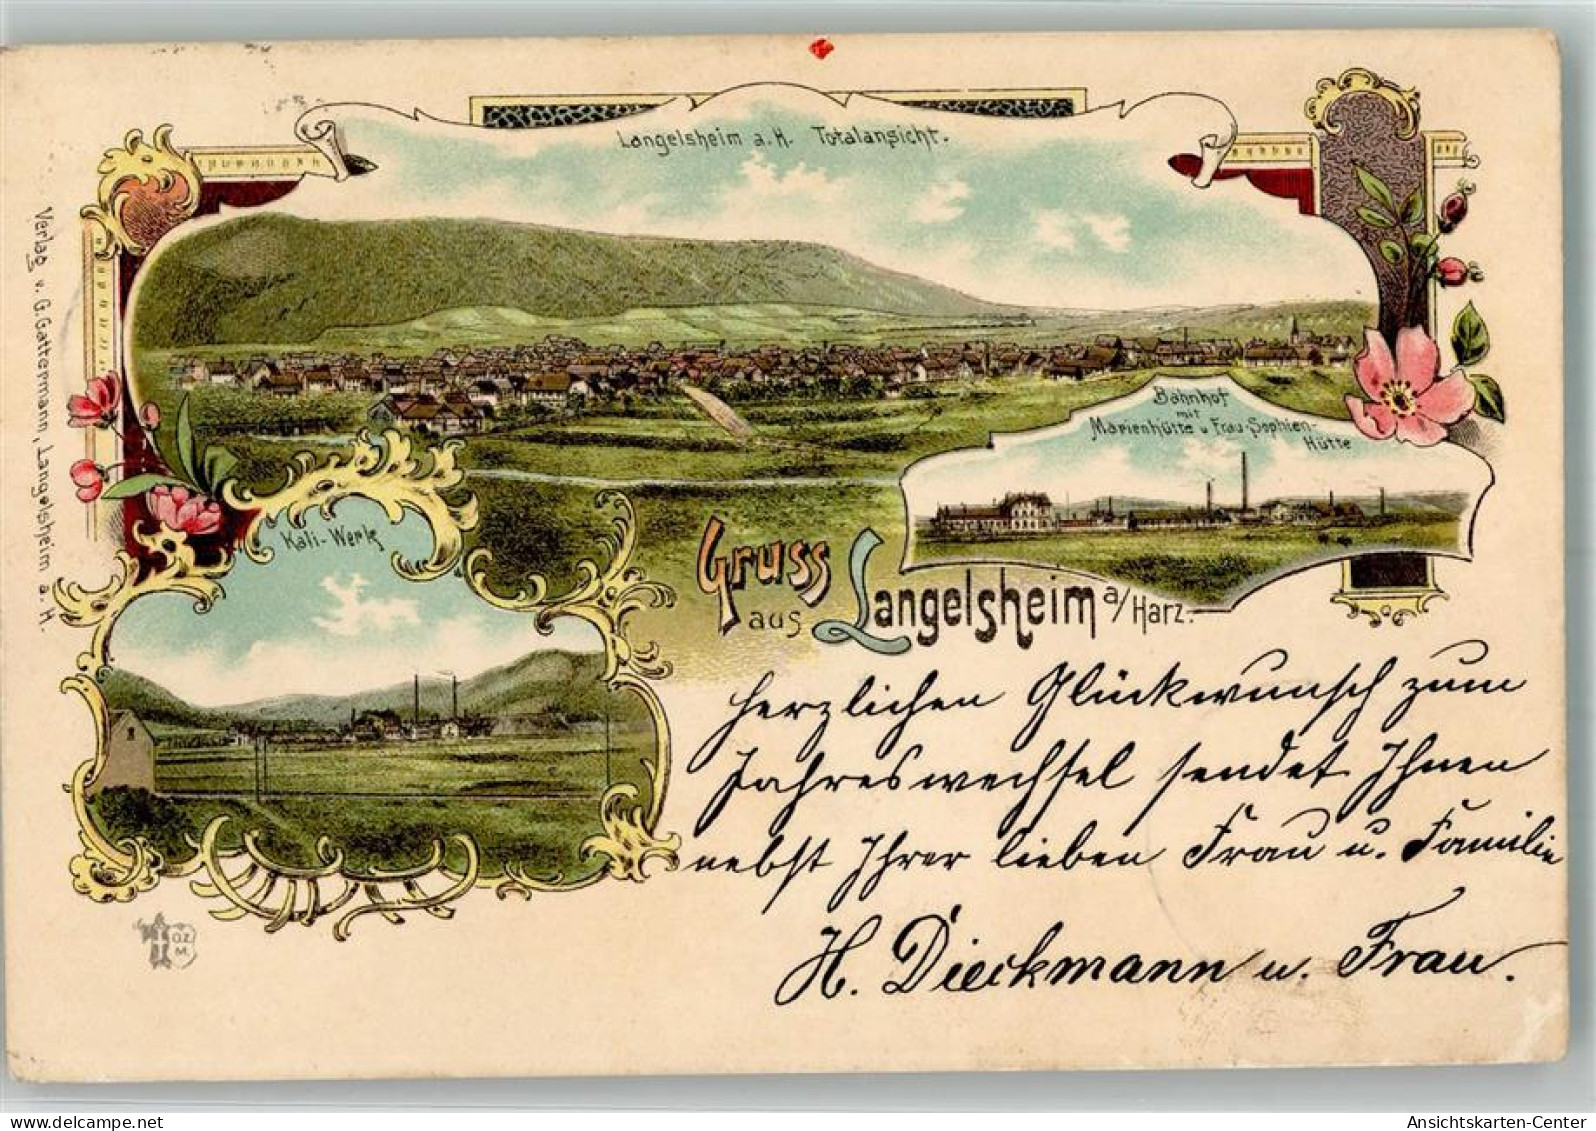 Langelsheim a.H. Totalansicht.
Bahnhof
mit
Marienhütte u Frau-Sophien-
Hütte
Kali-Werk
Verlag v. G. Gattermann, Langelsheim a. H.
Gruss
aus Langelsheim a/Harz.
Herzlichen Glückwunsch zum
Jahreswechsel sendet Ihnen
nebst Ihrer lieben Frau u. Familie
H. Dieckmann u. Frau.
O.Z.
M.
Ansichtskarten-Center